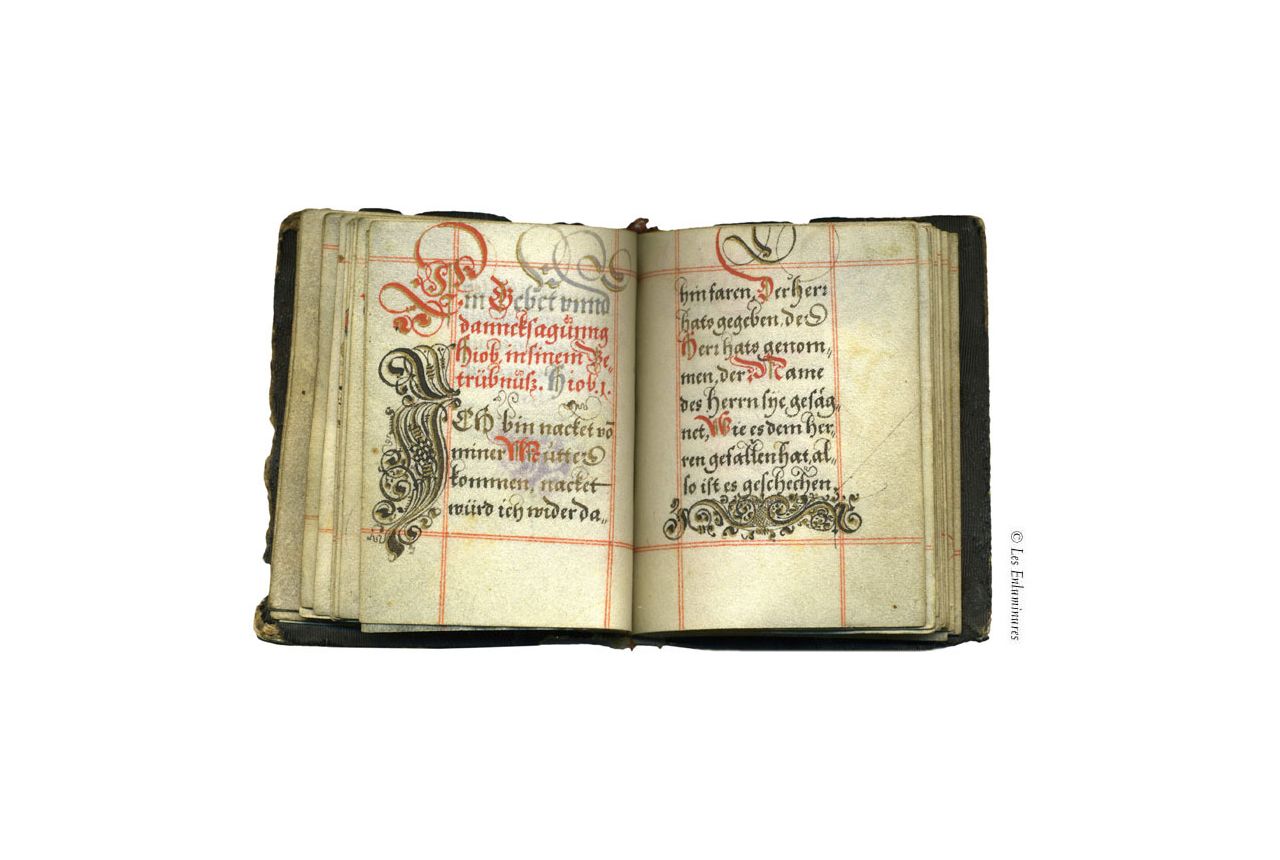 Ein Gebet vnnd
dancksagünng
Hiob, in sinem Be-
trübnüsz. Hiob.1.
ICH bin nacket vō
miner Mütter
kommen, nacket
würd ich wider da„
hin faren, Der Herr
hats gegeben, der
Herr hats genom„
men, der Name
des Herrn sye gesäg„
net, Wie es dem her„
ren gefallen hat, al„
so ist es geschechen.
© Les Enluminures